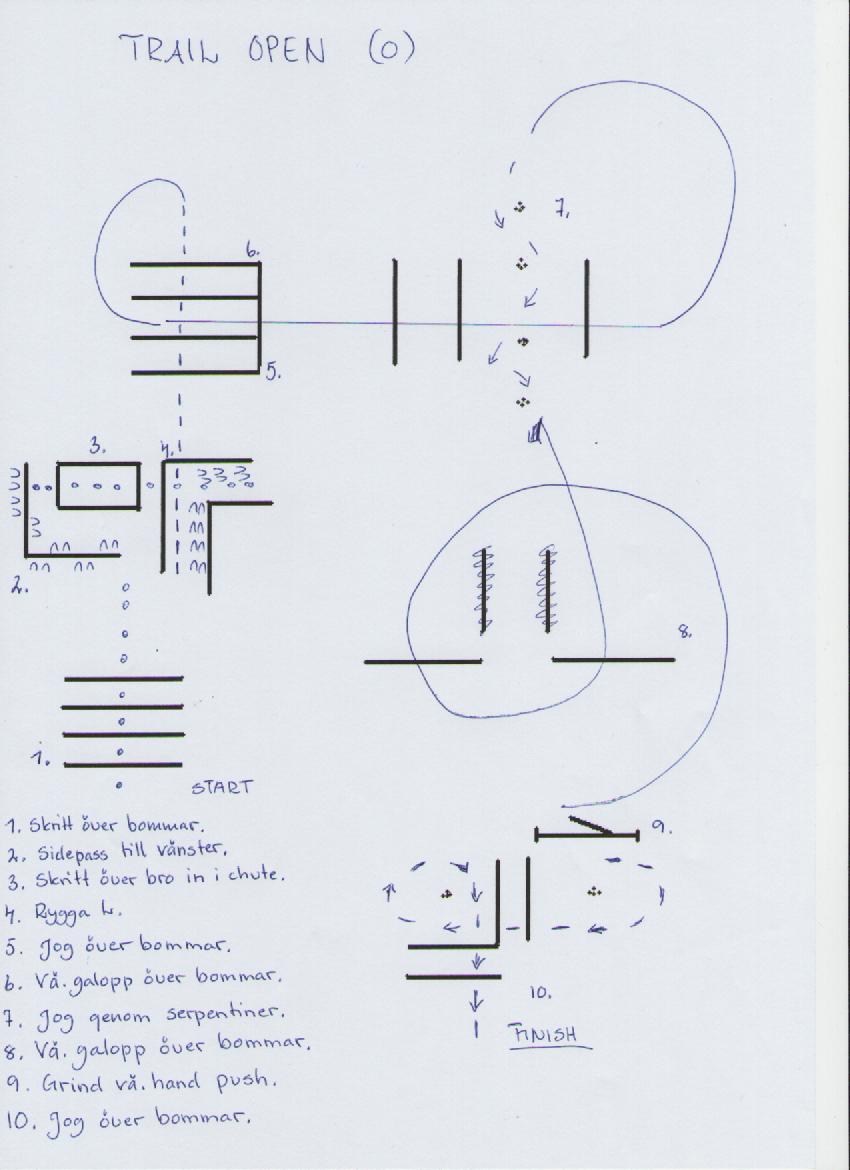 TRAIL OPEN (O)
7.
6.
5.
3.
4.
2.
8.
1.
START
9.
10.
FINISH
1. Skritt över bommar.
2. Sidepass till vänster.
3. Skritt över bro in i chute.
4. Rygga L.
5. Jog över bommar.
6. Vä. galopp över bommar.
7. Jog genom serpentiner.
8. Vä. galopp över bommar.
9. Grind vä. hand push.
10. Jog över bommar.